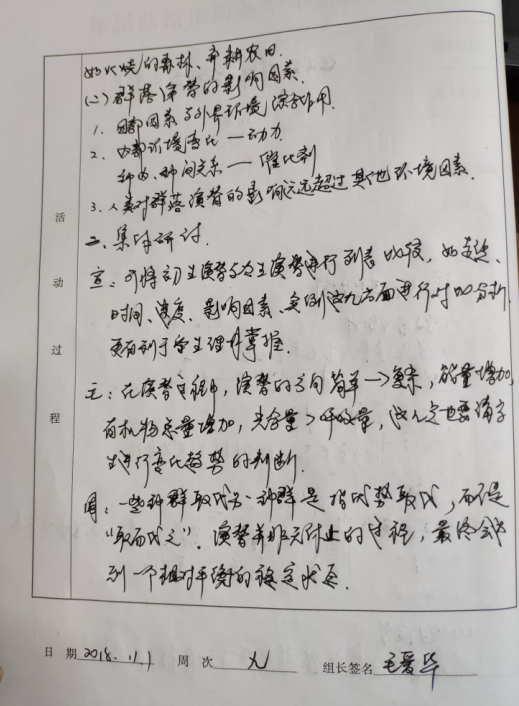 如火烧的森林、弃耕农田.
(二)群落演替的影响因素.
1. 内部因素与外界环境综合作用.
2. 内部环境变化 — 动力
种内、种间关系 — 催化剂
3. 人类对群落演替的影响远远超过其他环境因素.
二、集体研讨.
宣: 可将初生演替与次生演替进行列表比较, 如起点、
时间、速度、影响因素、实例这几方面进行对比分析
更有利于学生理解掌握.
王: 在演替过程中, 演替的方向简单→复杂, 能量增加,
有机物总量增加, 光合量>呼吸量, 这几点也要请学
生进行变化趋势的判断.
周: 一些种群取代另一种群是指优势取代, 而不是
“取而代之”. 演替并非无休止的过程, 最终会达
到一个相对平衡的稳定状态.
活
动
过
程
日 期 2018. 11. 1 周 次 九 组长签名 毛爱华